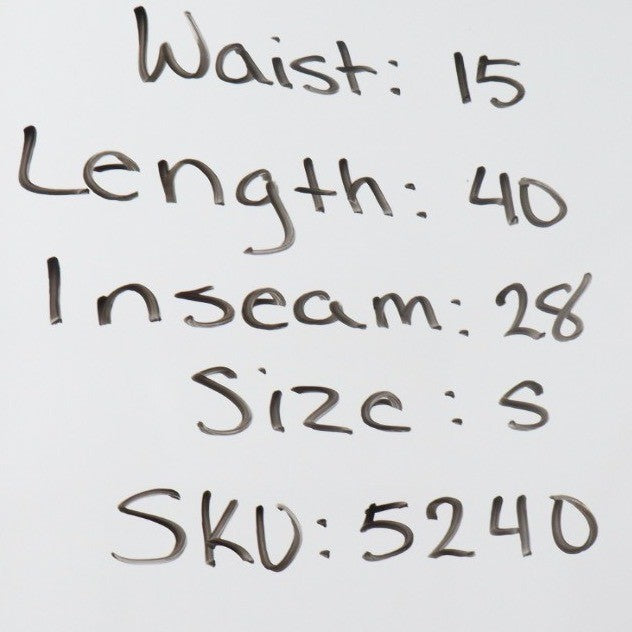 Waist: 15
Length: 40
Inseam: 28
Size: S
SKU: 5240